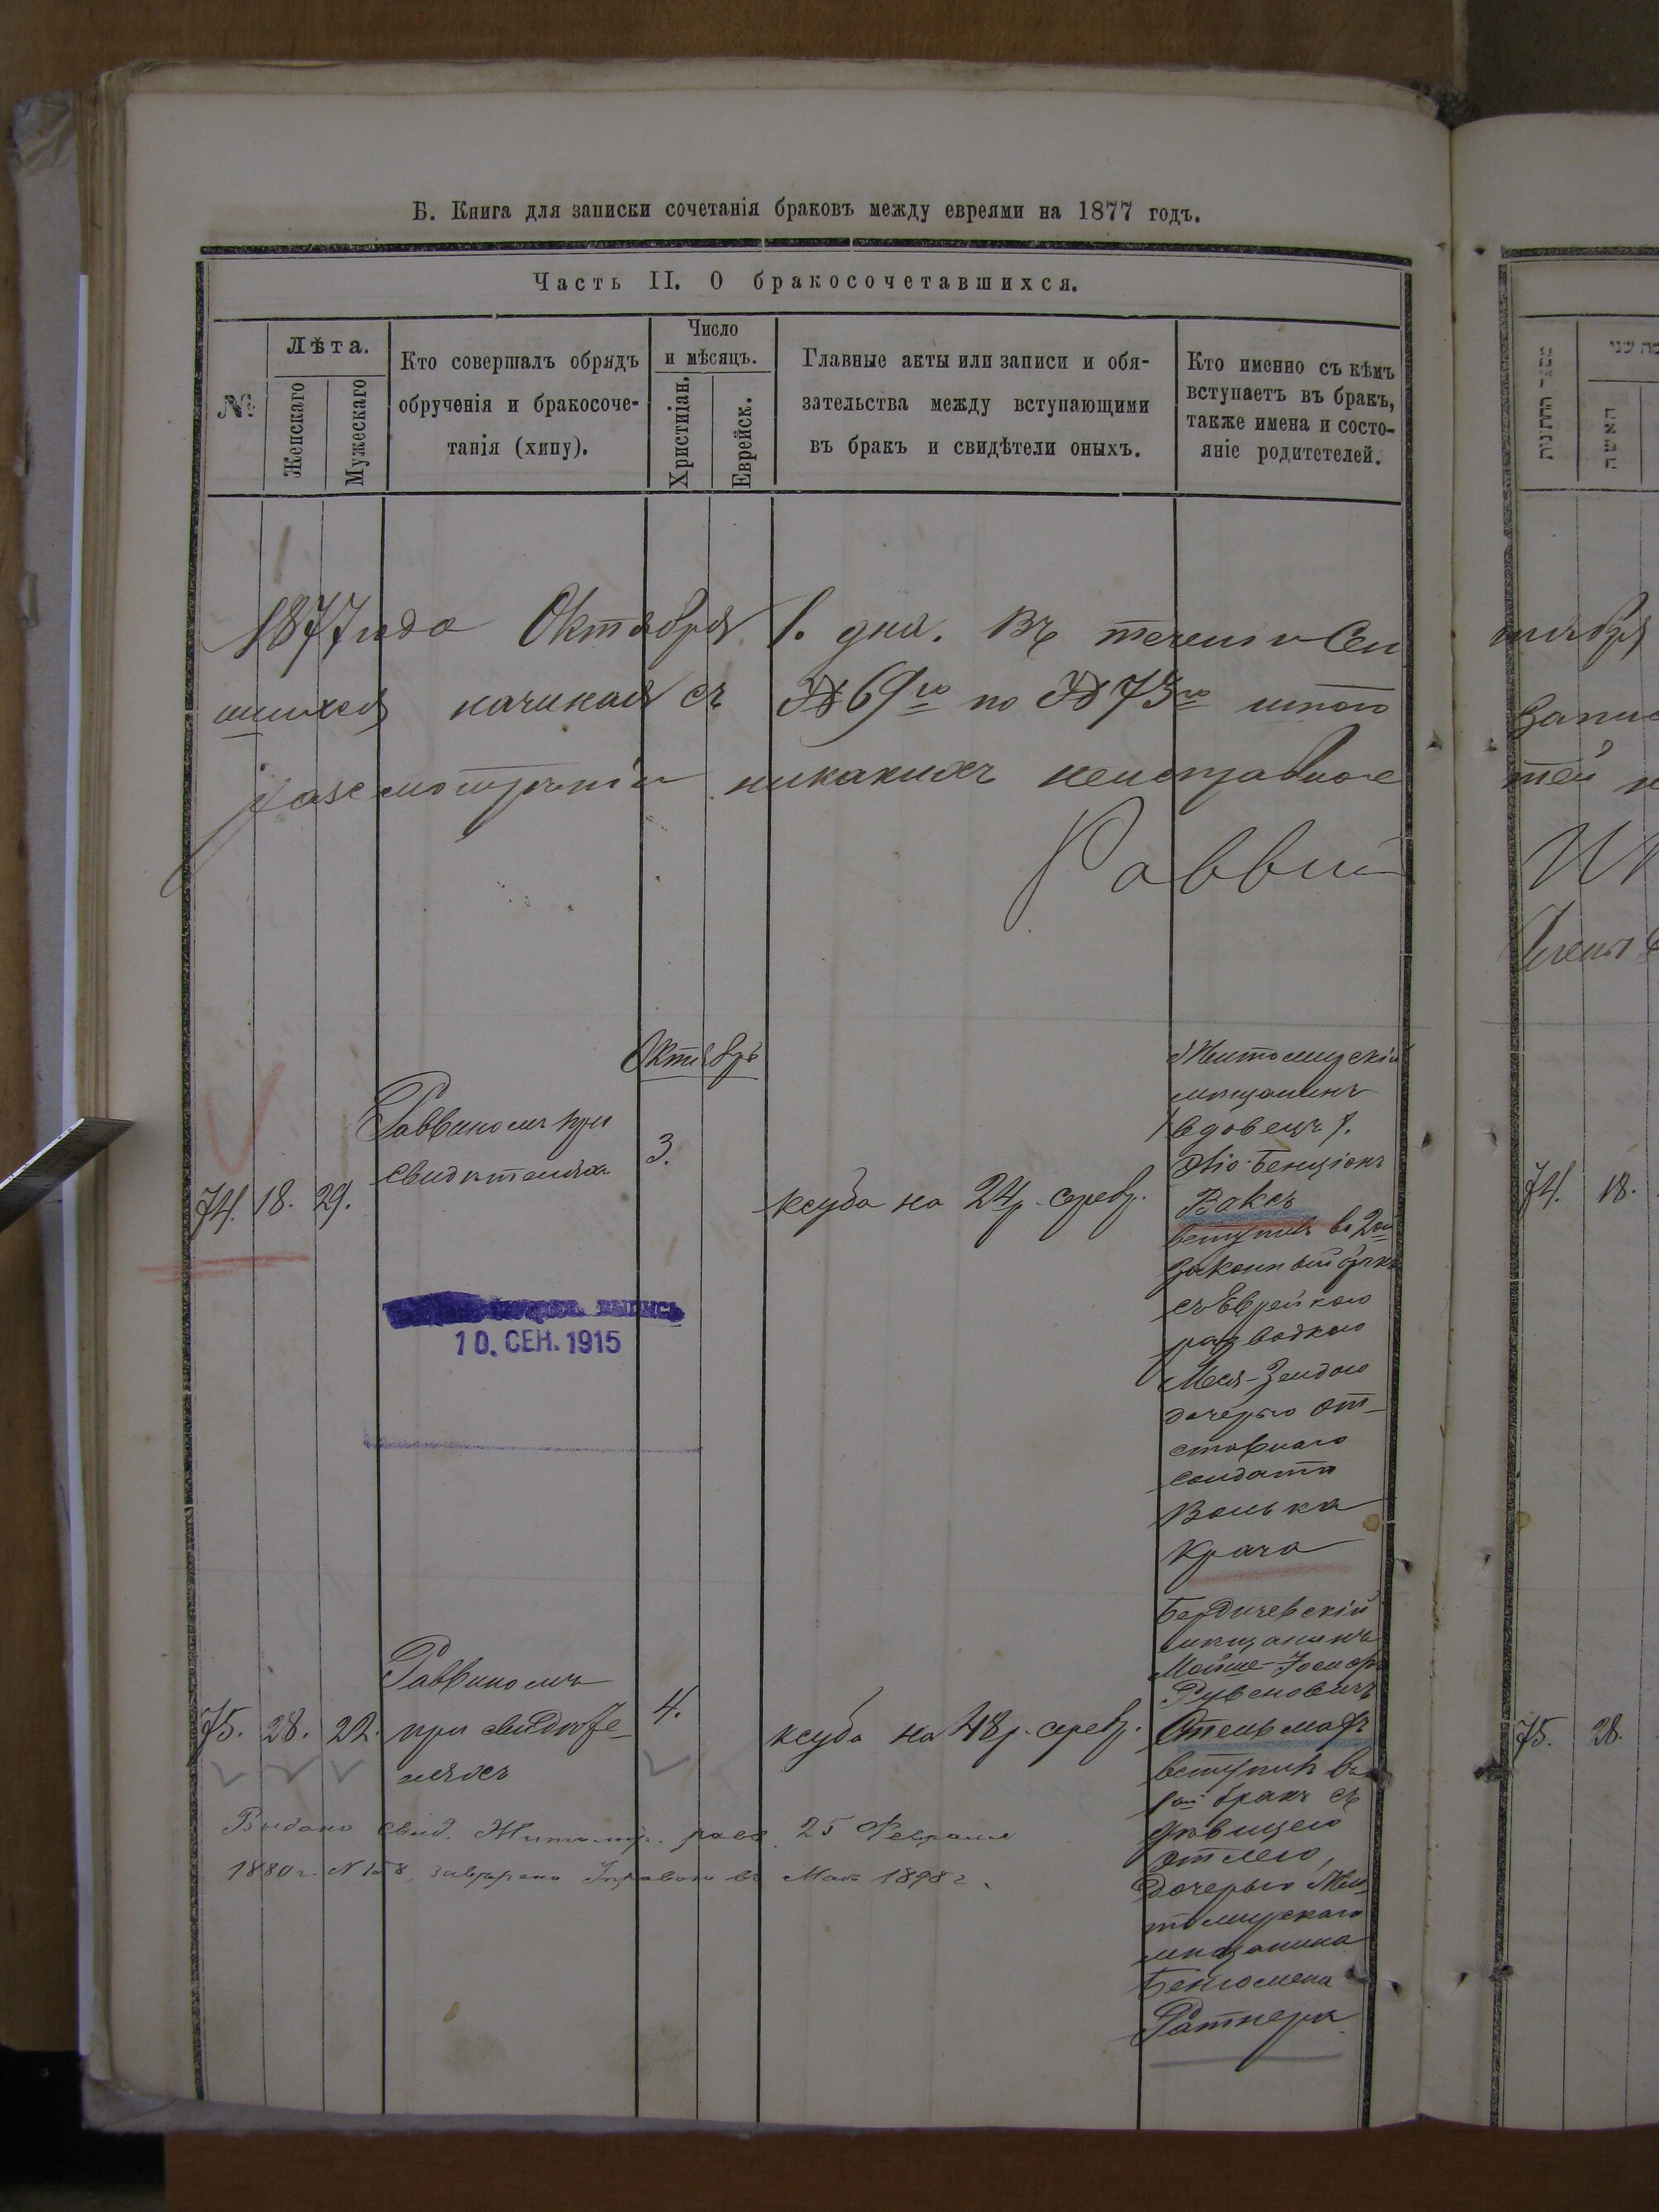 Б. Книга для записки сочетанія браковъ между евреями на 1877 годъ.
Часть II. О бракосочетавшихся.
№
Лѣта.
Женскаго
Мужескаго
Кто совершалъ обрядъ
обрученія и бракосоче-
танія (хипу).
Число
и мѣсяцъ.
Христіан.
Еврейск.
Главные акты или записи и обя-
зательства между вступающими
въ бракъ и свидѣтели оныхъ.
Кто именно съ кѣмъ
вступаетъ въ бракъ,
также имена и состо-
яніе родитетелей.
1877 года Октября 1. дня. Въ течении Сен
шихся начиная съ № 69го по № 73го
никакихъ неисправнос
Раввин
Октябрь
74. 18. 29.
Раввиномъ при
свидѣтеляхъ
3.
ксуба на 24 р. серебр.
Житомирскій
мѣщанинъ
/вдовецъ/.
Бенціонъ
Ваксъ
вступилъ во 2ой
законный бракъ
съ Еврейкою
разводкою
Мея-Зелдою
дочерью от-
ставнаго
солдата
Волька
Крача
10. СЕН. 1915
75. 28. 22.
Раввиномъ
при свидѣте-
ляхъ
4.
ксуба на 48 р. серебр.
Бердичевскій
мѣщанинъ
Мойше-Іосифъ
Рувеновичъ
Стельмахъ
вступилъ въ
1ый бракъ съ
дѣвицею
Этлею,
дочерью Жи-
томирскаго
мѣщанина
Бенюмена
Ратнера
Выдано свид. Житомир. равв. 25 Февраля
1880 г. № 158, заверено Управою въ Мае 1898 г.
74. 18.
75. 28.
מספר החתונות
האשה